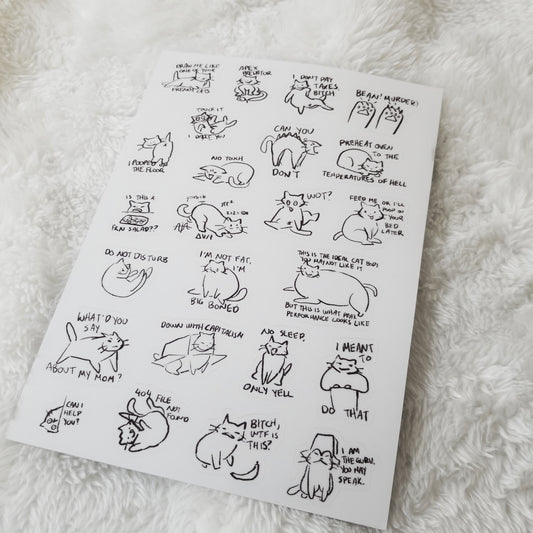 DRAW ME LIKE
ONE OF YOUR
FRENCH CATS
APEX
PREDATOR
I DON'T PAY
TAXES,
BITCH
BEAN! MURDER!
TOUCH IT
I DARE YOU
I POOPED
THE FLOOR
NO TOUCH
CAN YOU
DON'T
PREHEAT OVEN
TO THE
TEMPERATURES OF HELL
IS THIS A
FKN SALAD??
WOT?
FEED ME OR I'LL
POOP IN
YOUR
BED
LATER
DO NOT DISTURB
I'M NOT FAT,
I'M
BIG BONED
THIS IS THE IDEAL CAT BODY.
YOU MAY NOT LIKE IT
BUT THIS IS WHAT PEAK
PERFORMANCE LOOKS LIKE
WHAT'D YOU
SAY
ABOUT MY MOM?
DOWN WITH CAPITALISM
NO SLEEP,
ONLY YELL
I MEANT
TO
DO THAT
CAN I
HELP
YOU?
404 FILE
NOT
FOUND
BITCH,
WTF IS
THIS?
I AM
THE GURU.
YOU MAY
SPEAK.